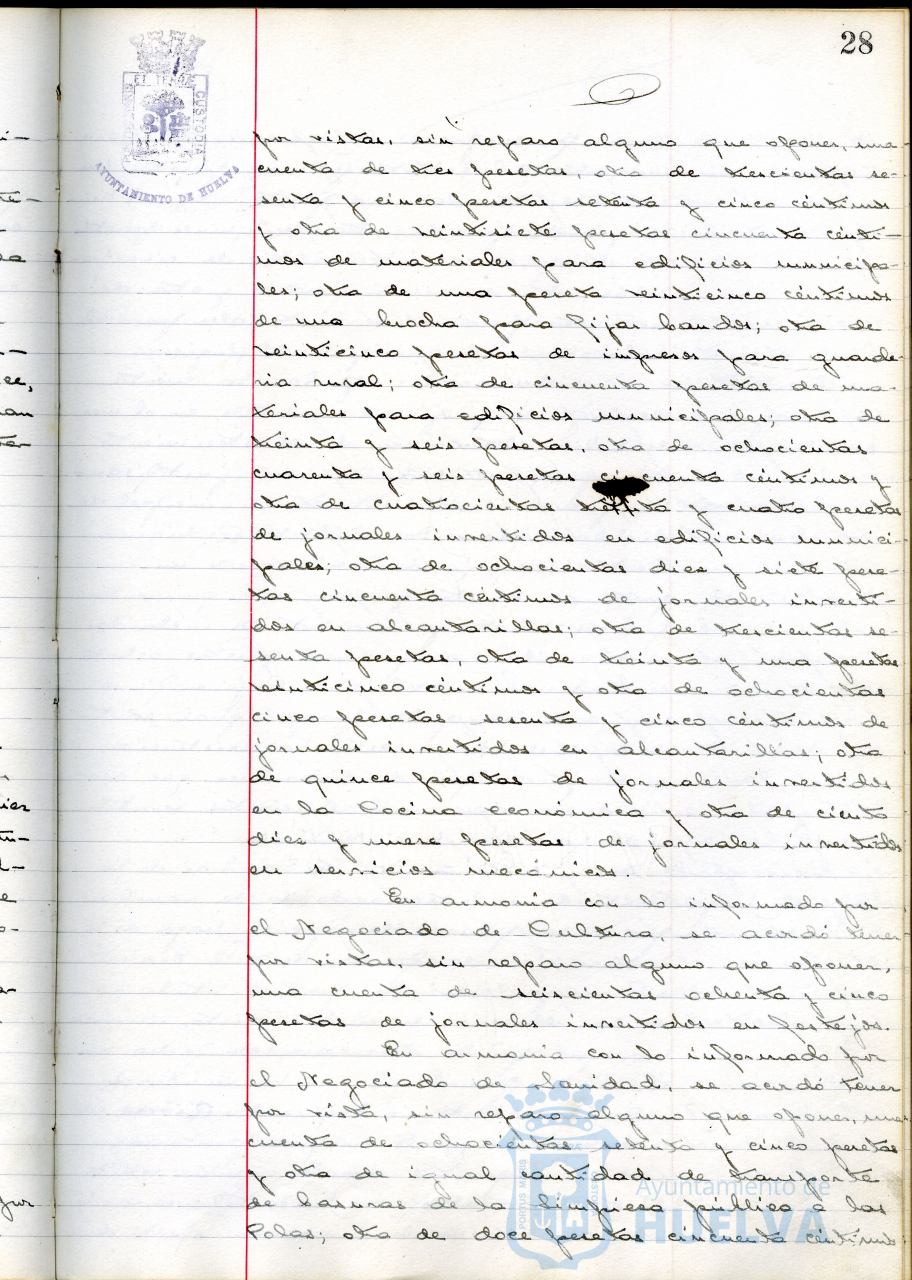 28
AYUNTAMIENTO DE HUELVA
por vistas, sin reparo alguno que oponer, una
cuenta de tres pesetas, otra de trescientas se-
senta y cinco pesetas setenta y cinco céntimos
y otra de veintisiete pesetas cincuenta cénti-
mos de materiales para edificios municipa-
les; otra de una peseta veinticinco céntimos
de una brocha para fijar bandos; otra de
veinticinco pesetas de impresos para guarde-
ria rural; otra de cincuenta pesetas de ma-
teriales para edificios municipales; otra de
treinta y seis pesetas, otra de ochocientas
cuarenta y seis pesetas cincuenta céntimos y
otra de cuatrocientas treinta y cuatro pesetas
de jornales invertidos en edificios munici-
pales; otra de ochocientas diez y siete pese-
tas cincuenta céntimos de jornales inverti-
dos en alcantarillas; otra de trescientas se-
senta pesetas, otra de treinta y una pesetas
veinticinco céntimos y otra de ochocientas
cinco pesetas sesenta y cinco céntimos de
jornales invertidos en alcantarillas; otra
de quince pesetas de jornales invertidos
en la Cocina económica y otra de ciento
diez y nueve pesetas de jornales invertidos
en servicios mecánicos.
En armonia con lo informado por
el Negociado de Cultura, se acordó tener
por vistas, sin reparo alguno que oponer,
una cuenta de seiscientas ochenta y cinco
pesetas de jornales invertidos en festejos.
En armonia con lo informado por
el Negociado de Sanidad, se acordó tener
por vista, sin reparo alguno que oponer, una
cuenta de ochocientas setenta y cinco pesetas
y otra de igual cantidad de transporte
de basuras de la limpieza pública a las
Polas; otra de doce pesetas cincuenta céntimos
Ayuntamiento de
HUELVA